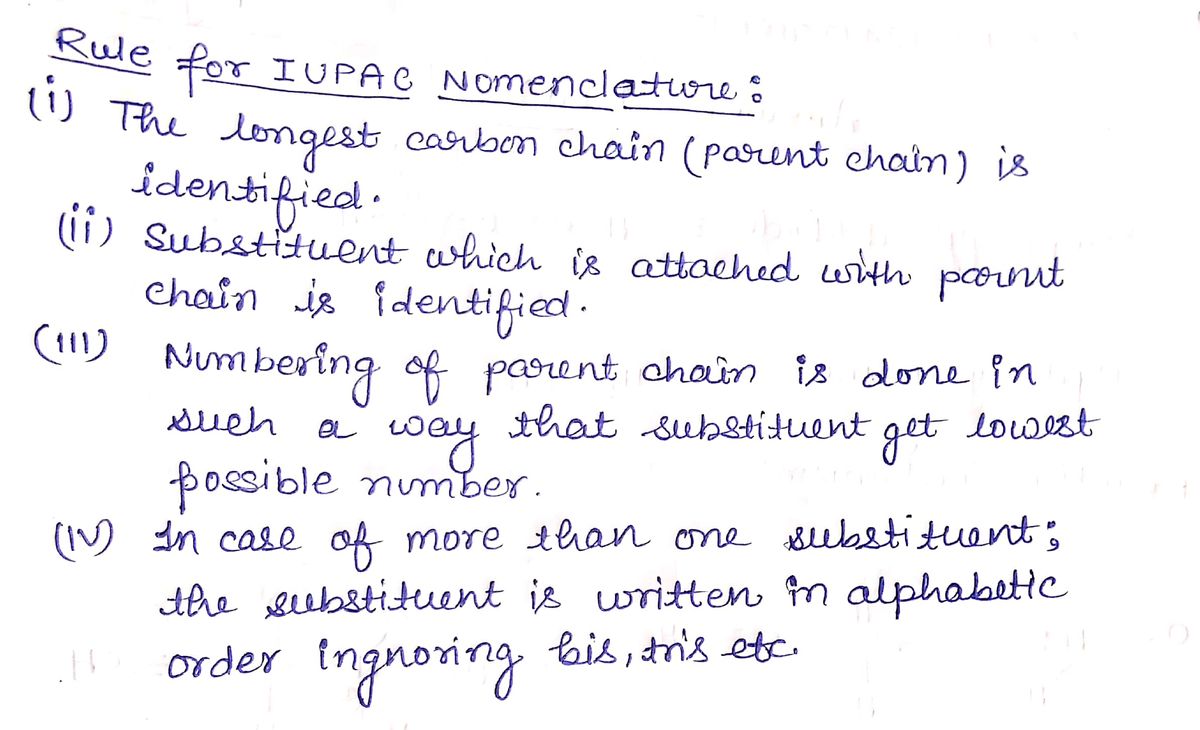 Rule for IUPAC Nomenclature :
(i) The longest carbon chain (parent chain) is
identified.
(ii) Substituent which is attached with parent
chain is identified.
(III) Numbering of parent chain is done in
such a way that substituent get lowest
possible number.
(IV) In case of more than one substituent;
the substituent is written in alphabetic
order ingnoring bis, tris etc.